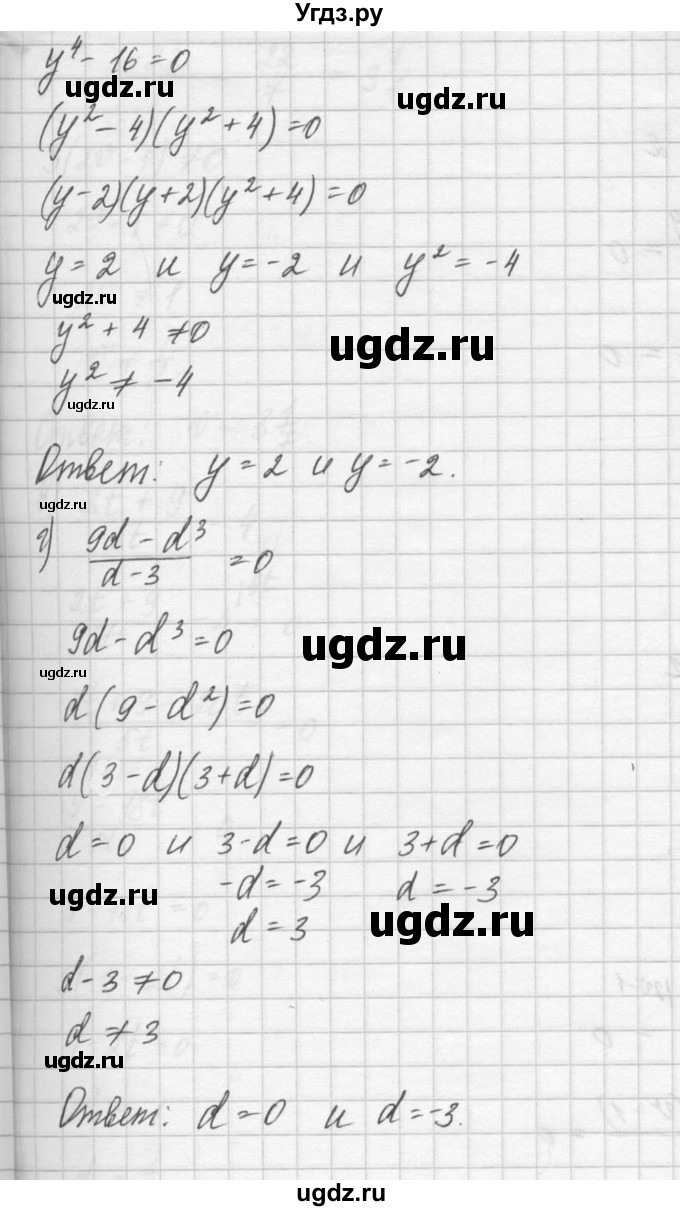 Угдз.ру
y⁴ - 16 = 0
ugdz.ru
ugdz.ru
(y² - 4)(y² + 4) = 0
(y - 2)(y + 2)(y² + 4) = 0
y = 2 и y = -2 и y² = -4
ugdz.ru
y² + 4 ≠ 0
ugdz.ru
y² ≠ -4
ugdz.ru
Ответ: y = 2 и y = -2.
ugdz.ru
г) (9d - d³)/(d - 3) = 0
9d - d³ = 0
ugdz.ru
ugdz.ru
d(9 - d²) = 0
d(3 - d)(3 + d) = 0
d = 0 и 3 - d = 0 и 3 + d = 0
-d = -3 d = -3
ugdz.ru
d = 3
ugdz.ru
d - 3 ≠ 0
d ≠ 3
ugdz.ru
Ответ: d = 0 и d = -3.
ugdz.ru